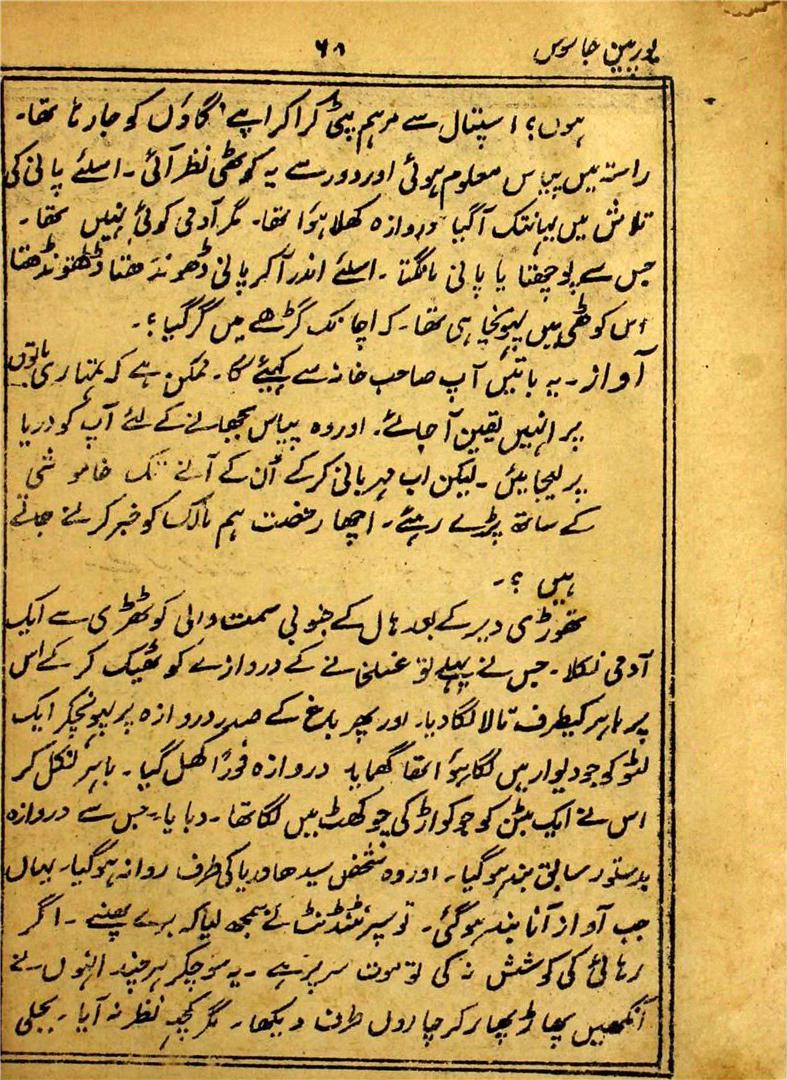 یورپین جاسوس
۶۸
ہوں؟ اسپتال سے مرہم پٹی کرا کر اپنے گاؤں کو جا رہا تھا۔
راستہ میں پیاس معلوم ہوئی اور دور سے یہ کوٹھی نظر آئی ۔ اسلئے پانی کی
تلاش میں یہانتک آگیا دروازہ کھلا ہوا تھا۔ مگر آدمی کوئی نہیں تھا۔
جس سے پوچھتا یا پانی مانگتا ۔ اسلئے اندر آکر پانی ڈھونڈھتا ڈھونڈھتا
اس کوٹھی میں پہونچا ہی تھا۔ کہ اچانک گڑھے میں گر گیا ؟۔
آواز ۔ یہ باتیں آپ صاحب خانہ سے کہیئے گا۔ ممکن ہے کہ تمہاری باتوں
پر انہیں یقین آجائے۔ اور وہ پیاس بجھانے کے لئے آپ کو دریا
پر لیجائیں ۔ لیکن اب مہربانی کرکے اُن کے آنے تک خاموشی
کے ساتھ پڑے رہیئے۔ اچھا رخصت ہم مالک کو خبر کرنے جاتے
ہیں ؟۔
تھوڑی دیر کے بعد ہال کے جنوبی سمت والی کوٹھڑی سے ایک
آدمی نکلا۔ جس نے پہلے تو غسلخانے کے دروازے کو ٹھیک کر کے اس
پر باہر کیطرف تالا لگا دیا۔ اور پھر باغ کے صدر دروازہ پر پہونچکر ایک
لٹو کو جو دیوار میں لگا ہوا تھا گھمایا دروازہ فوراً کھل گیا ۔ باہر نکل کر
اس نے ایک بٹن کو جو کواڑ کی چوکھٹ میں لگا تھا ۔ دبایا۔ جس سے دروازہ
بدستور سابق بند ہوگیا ۔ اور وہ شخص سیدھا دریا کی طرف روانہ ہوگیا۔ یہاں
جب آواز آنا بند ہوگئی۔ تو سپرنٹنڈنٹ نے سمجھ لیا کہ برے پھنسے ۔ اگر
رہائی کی کوشش نہ کی تو موت سر پر ہے ۔ یہ سوچکر ہر چند انہوں نے
آنکھیں پھاڑ پھاڑ کر چاروں طرف دیکھا۔ مگر کچھ نظر نہ آیا ۔ بجلی